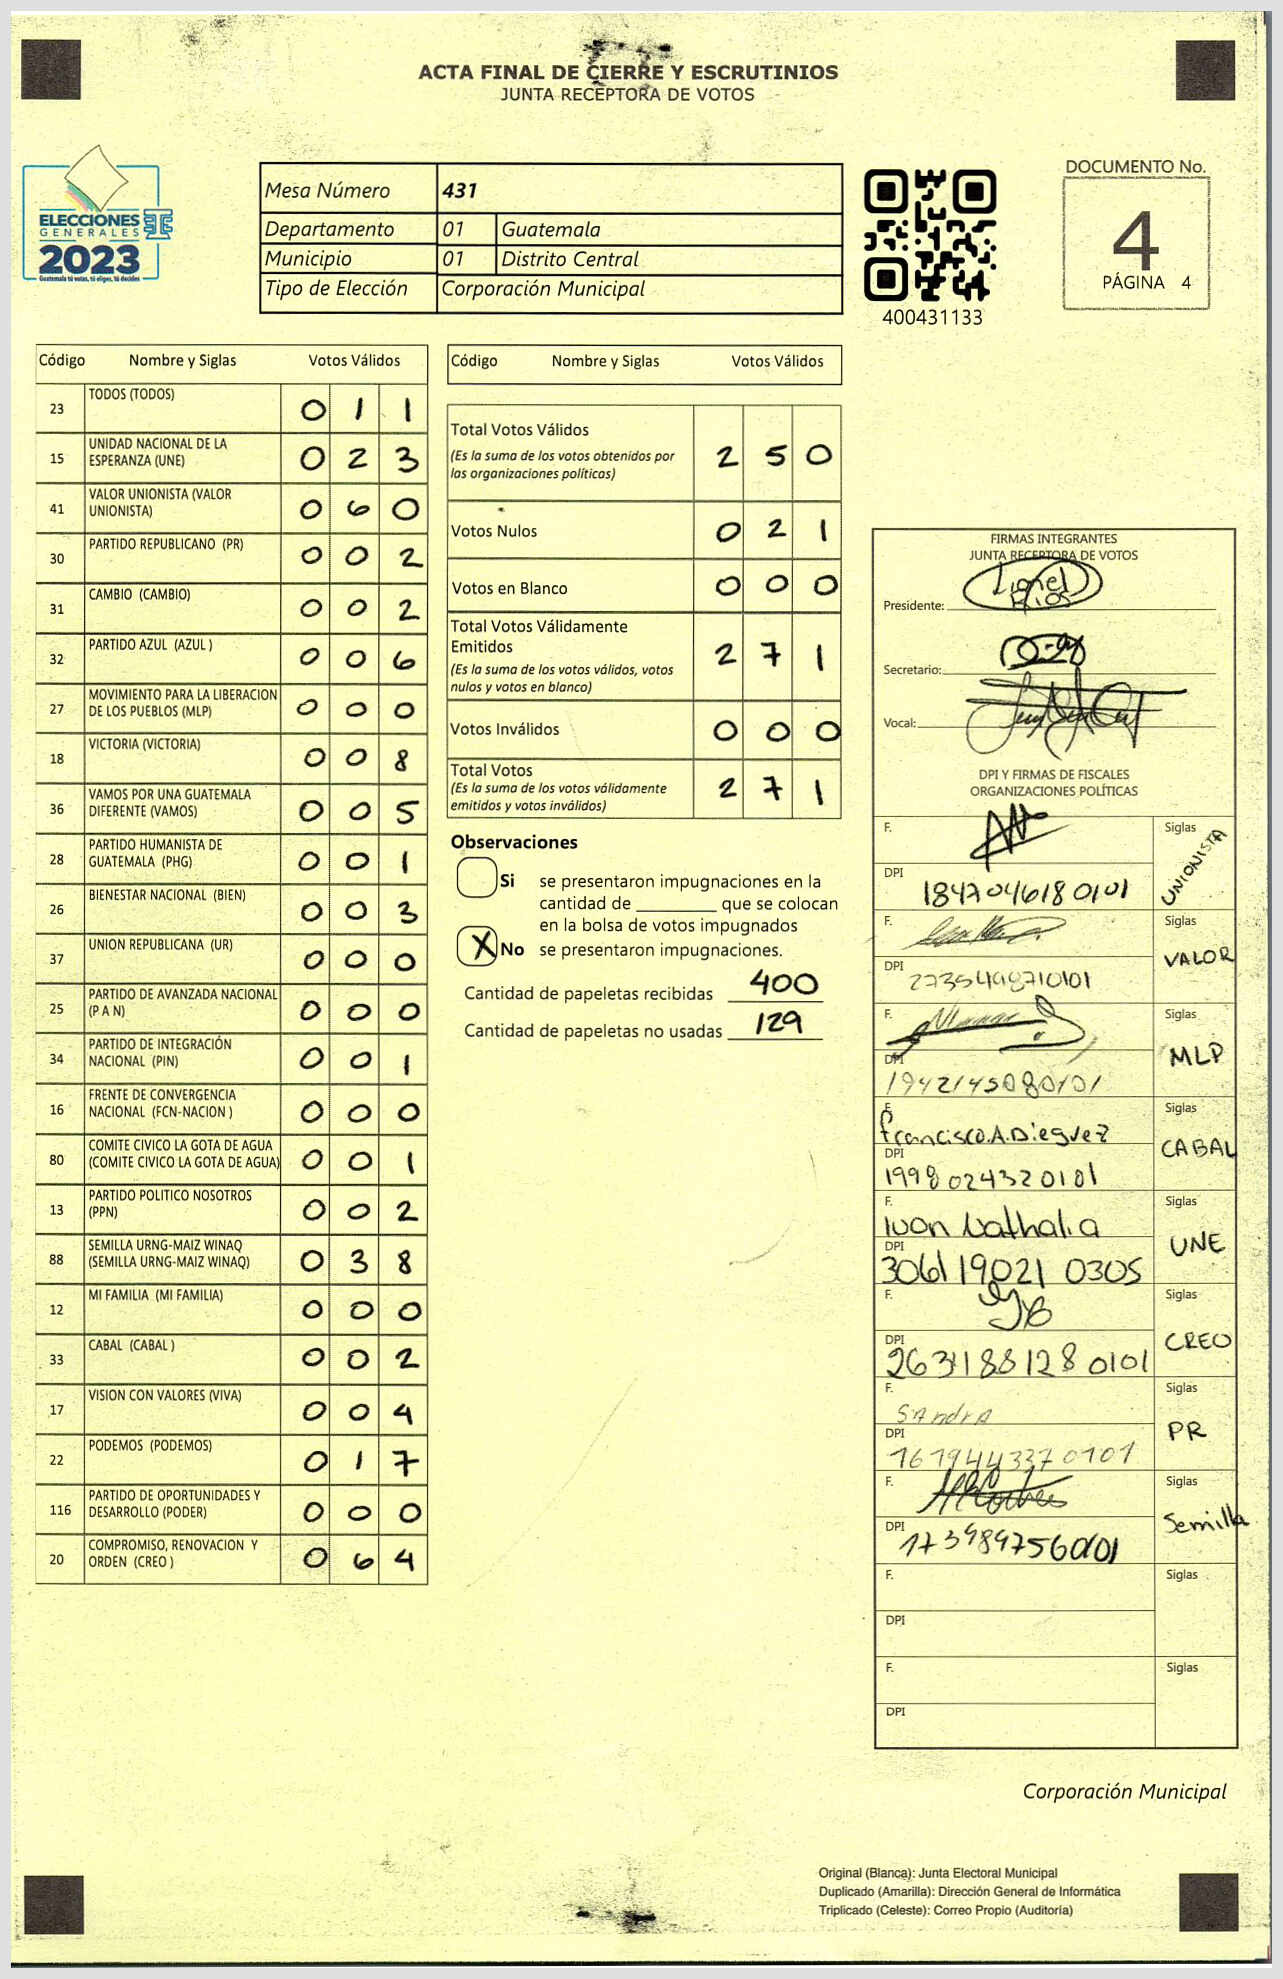 ACTA FINAL DE CIERRE Y ESCRUTINIOS
JUNTA RECEPTORA DE VOTOS
ELECCIONES
GENERALES
2023
Guatemala tú votas, tú eliges, tú decides
Mesa Número 431
Departamento 01 Guatemala
Municipio 01 Distrito Central
Tipo de Elección Corporación Municipal
400431133
DOCUMENTO No.
4
PÁGINA 4
Código Nombre y Siglas Votos Válidos
23 TODOS (TODOS) 0 1 1
15 UNIDAD NACIONAL DE LA
ESPERANZA (UNE) 0 2 3
41 VALOR UNIONISTA (VALOR
UNIONISTA) 0 6 0
30 PARTIDO REPUBLICANO (PR) 0 0 2
31 CAMBIO (CAMBIO) 0 0 2
32 PARTIDO AZUL (AZUL ) 0 0 6
27 MOVIMIENTO PARA LA LIBERACION
DE LOS PUEBLOS (MLP) 0 0 0
18 VICTORIA (VICTORIA) 0 0 8
36 VAMOS POR UNA GUATEMALA
DIFERENTE (VAMOS) 0 0 5
28 PARTIDO HUMANISTA DE
GUATEMALA (PHG) 0 0 1
26 BIENESTAR NACIONAL (BIEN) 0 0 3
37 UNION REPUBLICANA (UR) 0 0 0
25 PARTIDO DE AVANZADA NACIONAL
(P A N) 0 0 0
34 PARTIDO DE INTEGRACIÓN
NACIONAL (PIN) 0 0 1
16 FRENTE DE CONVERGENCIA
NACIONAL (FCN-NACION ) 0 0 0
80 COMITE CIVICO LA GOTA DE AGUA
(COMITE CIVICO LA GOTA DE AGUA) 0 0 1
13 PARTIDO POLITICO NOSOTROS
(PPN) 0 0 2
88 SEMILLA URNG-MAIZ WINAQ
(SEMILLA URNG-MAIZ WINAQ) 0 3 8
12 MI FAMILIA (MI FAMILIA) 0 0 0
33 CABAL (CABAL ) 0 0 2
17 VISION CON VALORES (VIVA) 0 0 4
22 PODEMOS (PODEMOS) 0 1 7
116 PARTIDO DE OPORTUNIDADES Y
DESARROLLO (PODER) 0 0 0
20 COMPROMISO, RENOVACION Y
ORDEN (CREO ) 0 6 4
Código Nombre y Siglas Votos Válidos
Total Votos Válidos 2 5 0
(Es la suma de los votos obtenidos por
las organizaciones políticas)
Votos Nulos 0 2 1
Votos en Blanco 0 0 0
Total Votos Válidamente
Emitidos 2 7 1
(Es la suma de los votos válidos, votos
nulos y votos en blanco)
Votos Inválidos 0 0 0
Total Votos 2 7 1
(Es la suma de los votos válidamente
emitidos y votos inválidos)
Observaciones
Si se presentaron impugnaciones en la
cantidad de ________ que se colocan
en la bolsa de votos impugnados
X No se presentaron impugnaciones.
Cantidad de papeletas recibidas 400
Cantidad de papeletas no usadas 129
FIRMAS INTEGRANTES
JUNTA RECEPTORA DE VOTOS
Presidente: Lionel
Rios
Secretario:
Vocal:
DPI Y FIRMAS DE FISCALES
ORGANIZACIONES POLÍTICAS
F. Siglas UNIONISTA
DPI 1847046180101
F. Siglas VALOR
DPI 2735498710101
F. Siglas MLP
DPI 1942145080101
F. Francisco.A.Dieguez Siglas CABAL
DPI 1998024320101
F. Ivon Nathalia Siglas UNE
DPI 3061190210305
F. Siglas CREO
DPI 2634188128 0101
F. SANdrA Siglas PR
DPI 1619443370101
F. Siglas Semilla
DPI
F. Siglas
DPI
F. Siglas
DPI
Corporación Municipal
Original (Blanca): Junta Electoral Municipal
Duplicado (Amarilla): Dirección General de Informática
Triplicado (Celeste): Correo Propio (Auditoría)